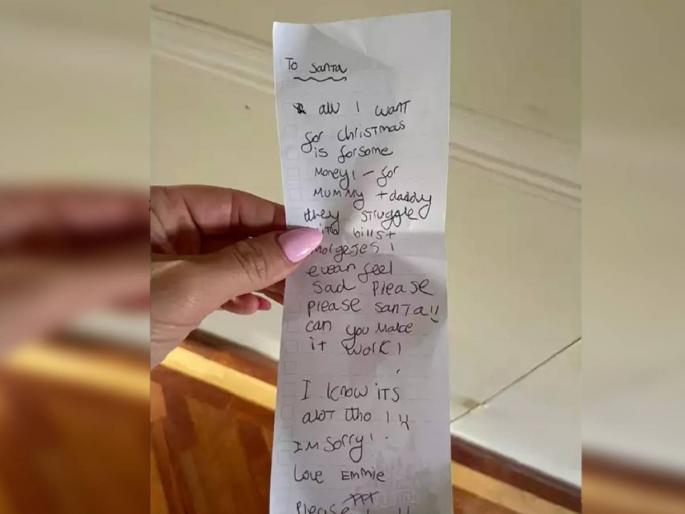 To Santa
all I want
for christmas
is forsome
Money! - for
Mummy + daddy
they struggle
with bills +
morgejes !
evean feel
sad Please
please santa!!
can you Make
it work!
I know its
alot tho !!
I'm sorry!
Love Emmie
Please